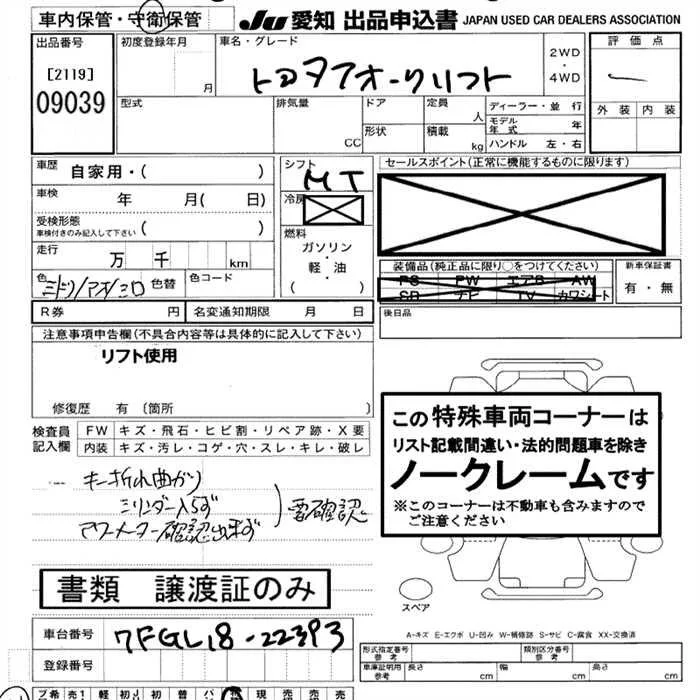 車内保管・守衛保管
JU 愛知 出品申込書 JAPAN USED CAR DEALERS ASSOCIATION
出品番号 初度登録年月 車名・グレード 評価点
[2119] 月 トヨタフォークリフト 2WD・4WD
09039 型式 排気量 CC ドア 定員 人 ディーラー・並行 外装 内装
形状 積載 kg モデル年式 年
ハンドル 左・右
車歴 自家用・( ) シフト MT セールスポイント(正常に機能するものに限ります)
車検 年 月( 日) 冷房
受検形態 車検付きのみ記入して下さい ( ) 燃料 ガソリン・軽・油 ( )
走行 万 千 km 装備品(純正品に限り○をつけてください) 新車保証書
色 ミドリ/アオ/シロ 色替 色コード PS PW エアB AW 有・無
SR ナビ TV カワシート
R券 円 名変通知期限 月 日 後日品
注意事項申告欄(不具合内容等は具体的に記入して下さい)
リフト使用
修復歴 有〔箇所 〕
検査員記入欄 FW キズ・飛石・ヒビ割・リペア跡・X要
内装 キズ・汚レ・コゲ・穴・スレ・キレ・破レ
この特殊車両コーナーは
リスト記載間違い・法的問題車を除き
ノークレームです
※このコーナーは不動車も含みますので
ご注意ください
キー折れ曲がり
シリンダー入らず
アワーメーター確認出来ず
要確認
書類 譲渡証のみ
スペア
A-キズ E-エクボ U-凹み W-補修跡 S-サビ C-腐食 XX-交換済
車台番号 7FGL18-22393
登録番号
形式指定番号 参考 類別区分番号 参考
車庫証明用 参考 長さ cm 幅 cm 高さ cm